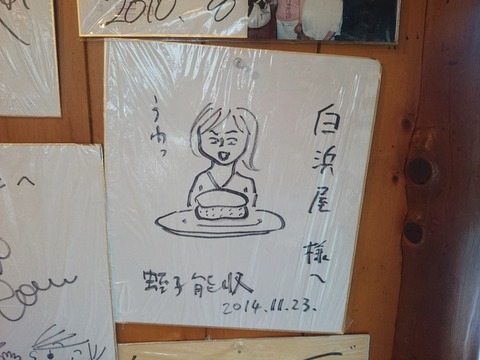 2010. 8
白浜屋様へ
うわっ
蛭子能収
2014.11.23.
へ